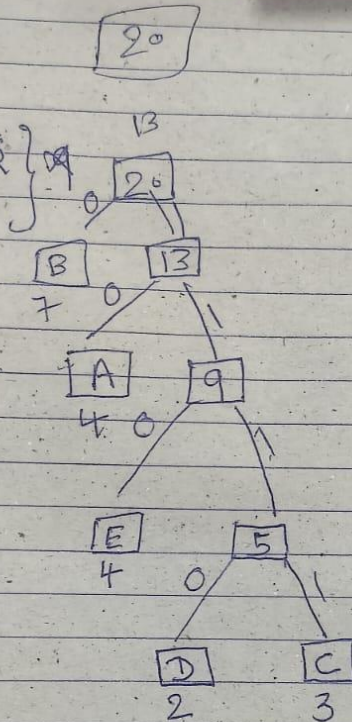 20
13
20
0
B 13
7 0 1
A 9
4 0 1
E 5
4 0 1
D C
2 3